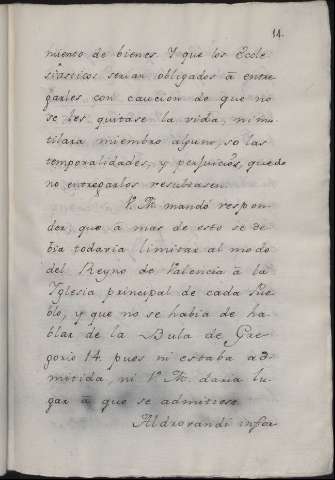 14.
miento de bienes. Y que los Ecle-
siasticos serian obligados á entre
garles con caucion de que no
se les quitase la vida, ni mu
tilara miembro alguno, so las
temporalidades, y perjuicios, que de
no entregarlos resultasen.
V. M. mandó respon-
der, que á mas de esto se de
bia todavia limitar al modo
del Reyno de Valencia á la
Yglesia principal de cada Pue
blo, y que no se habia de ha-
blar de la Bula de Gre-
gorio 14. pues ni estaba ad-
mitida, ni V. M. daria lu-
gar á que se admitiese.
Aldrovandi infor